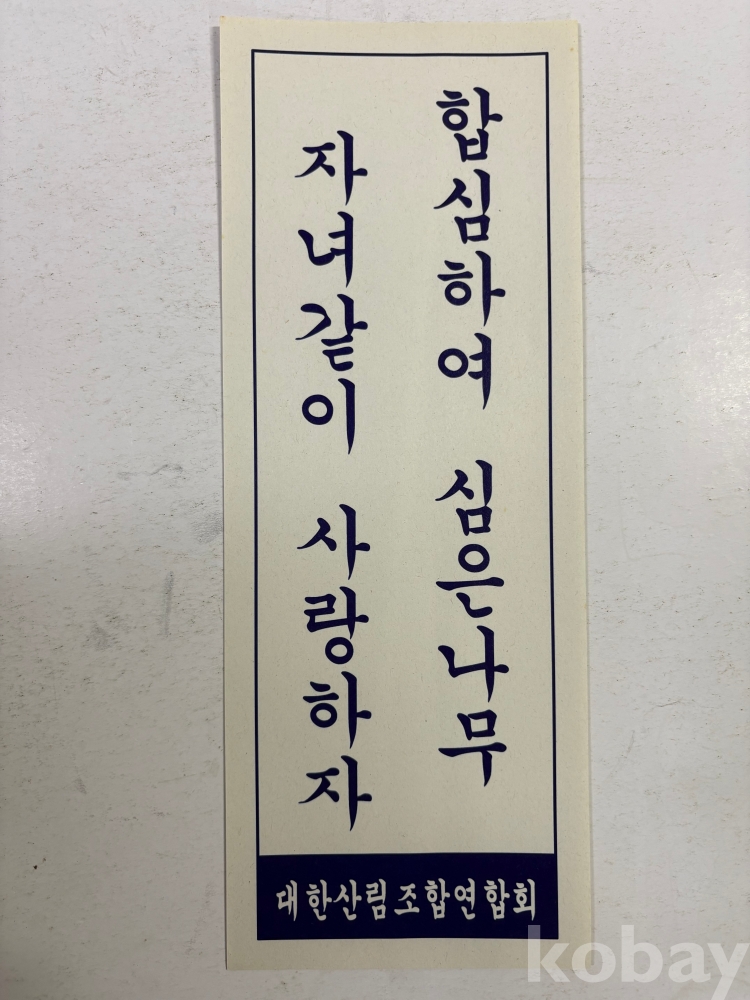 합심하여 심은나무
자녀같이 사랑하자
대한산림조합연합회
kobay